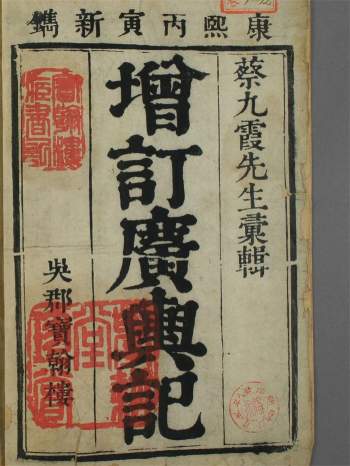 康熙丙寅新鐫
蔡九霞先生彙輯
增訂廣輿記
吳郡寶翰樓